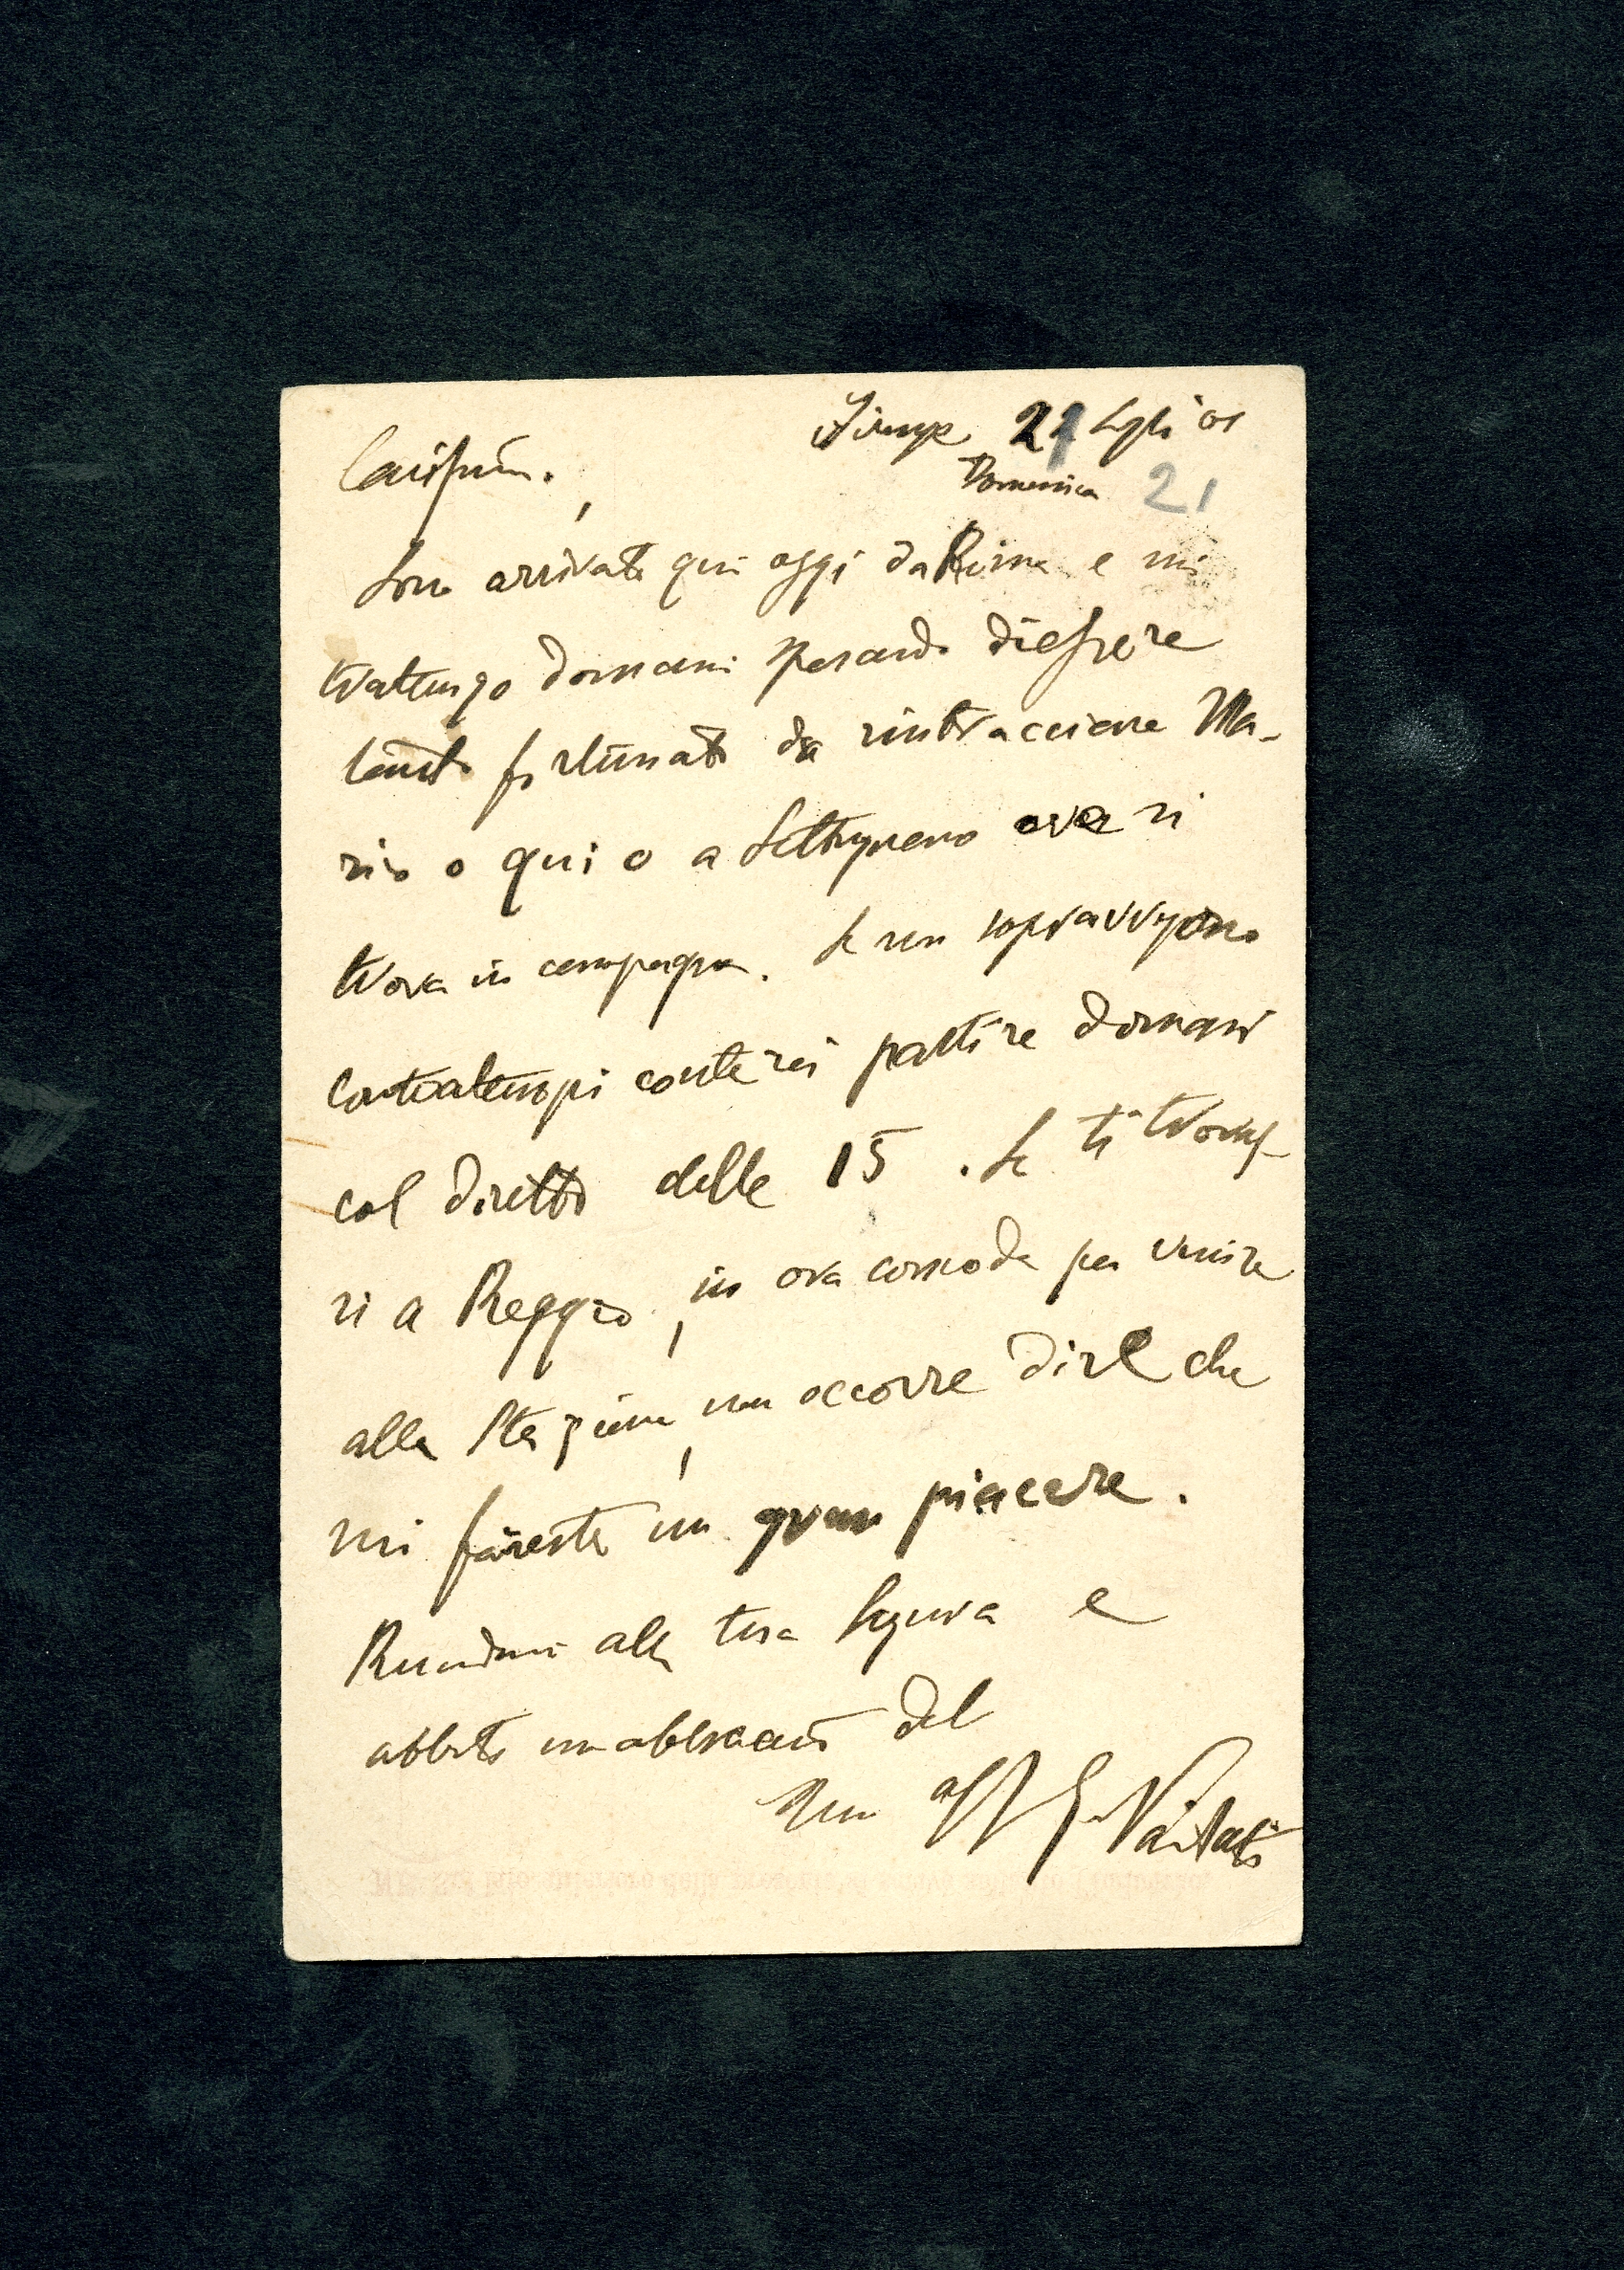 Firenze 21 Luglio 01
Domenica 21
Carissimo,
Sono arrivato qui oggi da Roma e mi
trattengo domani sperando di essere
tanto fortunato da rintracciare Ma-
rio o qui o a Settignano ove si
trova in campagna. Se non sopravvengono
contrattempi conterei partire domani
col diretto delle 15. Se ti trovas-
si a Reggio, in ora comoda per venire
alla stazione, non occorre dire che
mi faresti un gran piacere.
Ricordami alla tua Signora e
abbiti un abbraccio del
tuo aff